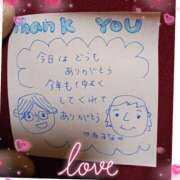 THANK YOU
今日はどうも
ありがとう
今年も仲よく
してくれて
ありがとう
love